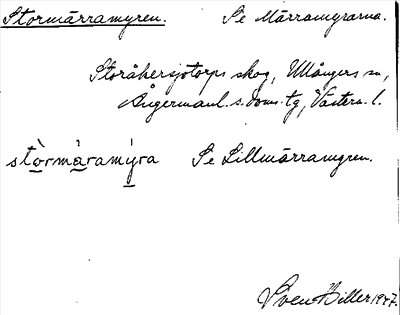 Stormärramyren. Se Märramyrarna.
Storåkersjötorps skog, Ullångers sn,
Ångermanl. s. doms. tg, Västern. l.
stòrmàramýra Se Lillmärramyren.
Sven Hiller 1947.